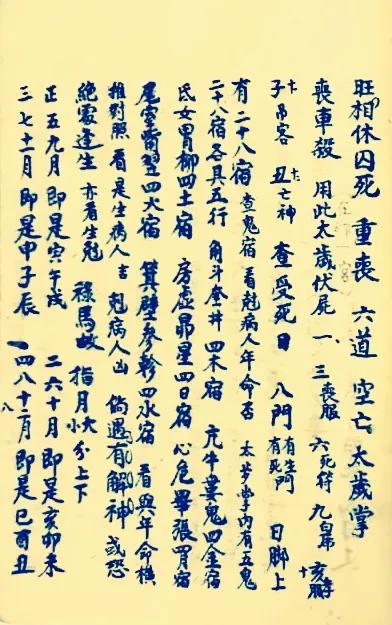 旺相休囚死 重喪 六道 空亡 太歲掌
喪車殺 用此太歲伏屍 一、三喪服 六死符 九白吊 十亥
子十吊客 丑十亡神 查受死日 八門有生門有死 日脚上
有二十八宿 查鬼宿 看尅病人年命否 太歲掌內有五鬼
二十八宿各具五行 角斗奎井四木宿 亢牛婁鬼四金宿
氐女胃柳四土宿 房虛昴星四日宿 心危畢張四月宿
尾室觜翌四火宿 箕壁參軫四水宿 看與年命橫
推對照 看是生病人吉 尅病人凶 倘遇有解神或恐
絕處逢生 亦看生尅 祿馬 指月大小分上下
正五九月 即是寅午戌 二六十月 即是亥卯未
三七十二月 即是申子辰 一四八十二月 即是巳酉丑
八